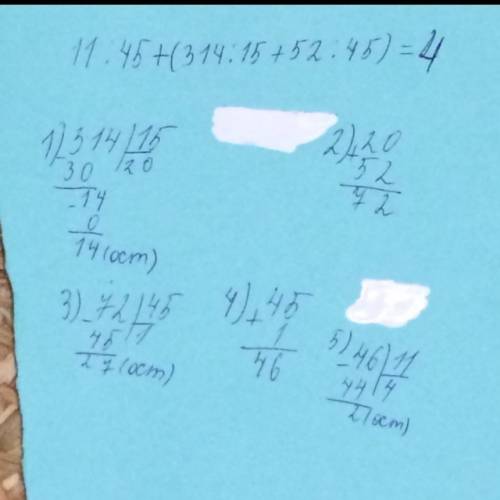 11 : 45+(314:15+52:45)=4
1) 314 | 15
- 30 | 20
-14
0
14(ост)
2) + 20
52
72
3) - 72 | 45
45 | 1
27(ост)
4) + 45
1
46
5) - 46 | 11
44 | 4
2(ост)